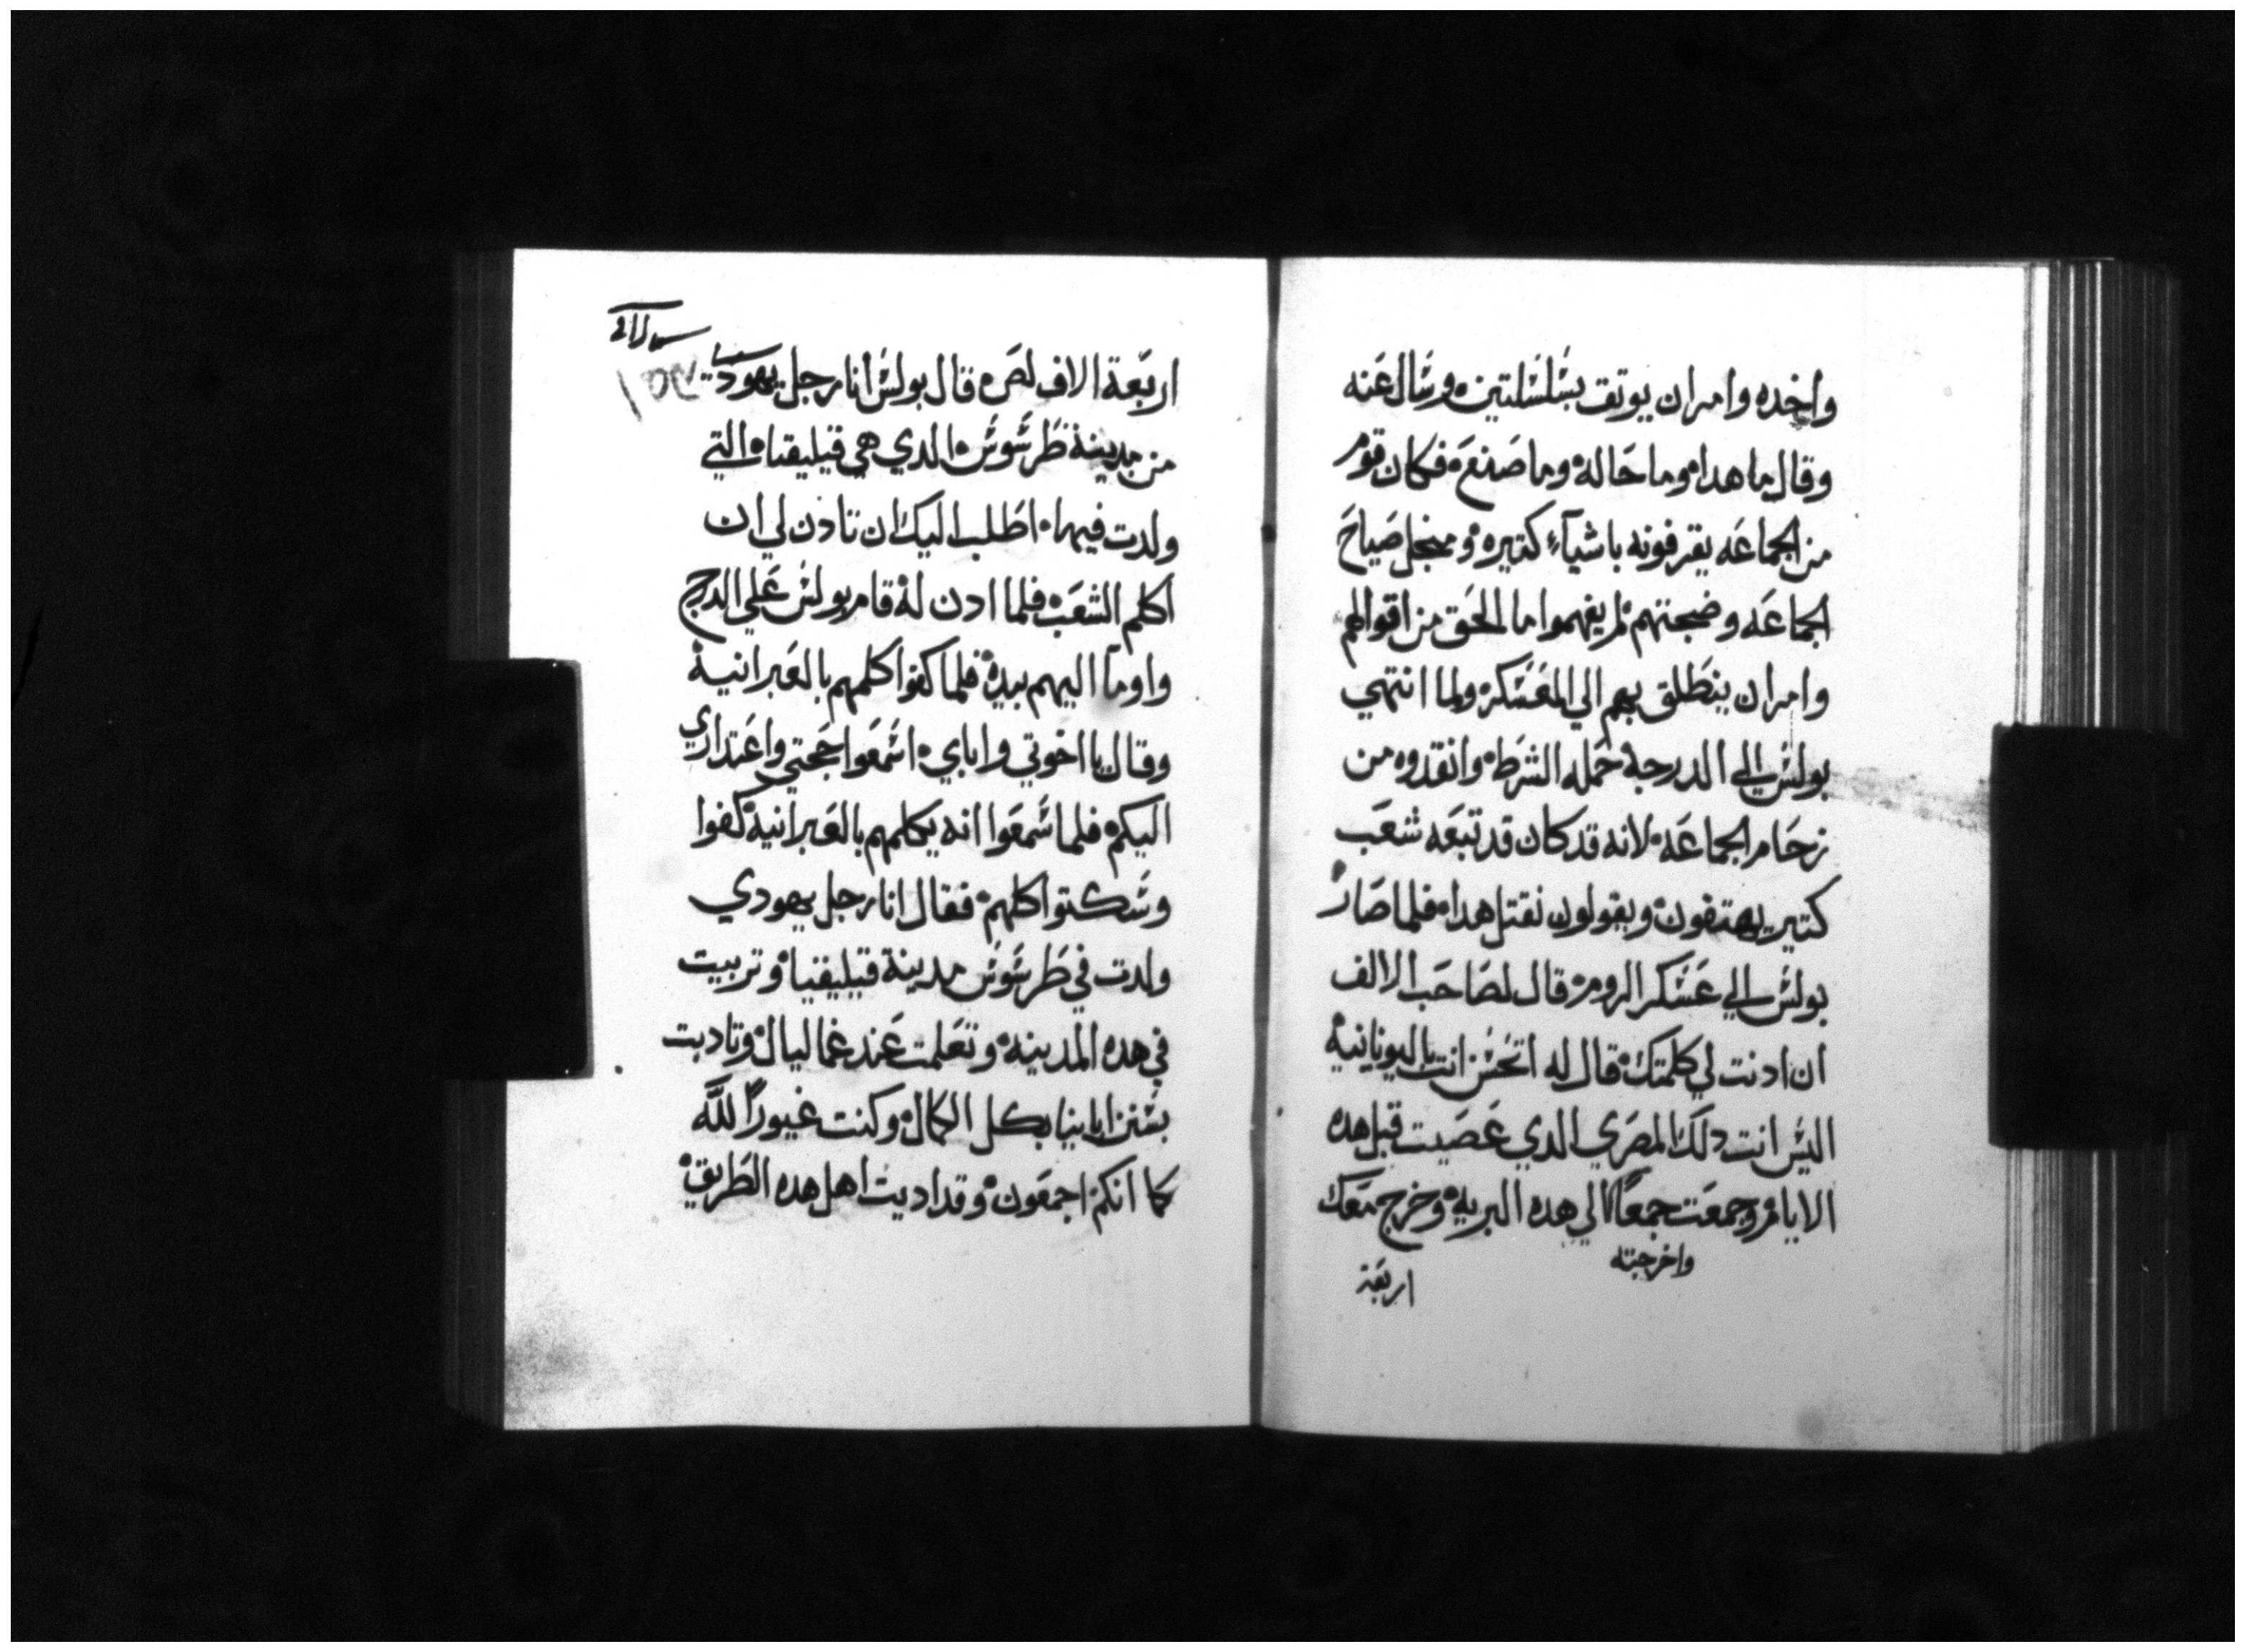 واخده وامر ان يوتق بسلسلتين وسال عنه
وقال ما هدا وما حاله وما صنع فكان قوم
من الجماعه يقرفونه باشياء كتيره ومنجل صياح
الجماعه وضجتهم لم يفهموا ما الحق من اقوالهم
وامر ان ينطلق بهم الي المعسكر ولما انتهي
بولس الي الدرجه حمله الشرط وانقدوه من
زحام الجماعه لانه قد كان قد تبعه شعب
كتير يهتفون ويقولون نقتل هدا فلما صار
بولس الي عسكر الروم قال لصاحب الالف
ان ادنت لي كلمتك قال له اتحسن انت باليونانية
اليس انت دلك المصري الدي عصيت قبل هده
الايام وجمعت جمعًا الي هده البريه وخرج معك
واخرجته
اربعة
اربعة الاف لص قال بولس انا رجل يهودي
من مدينة طرسوس الدي هي قيليقيا التي
ولدت فيها اطلب اليك ان تادن لي ان
اكلم الشعب فلما ادن له قام بولس علي الدرج
واومآ اليهم بيده فلما كفوا كلمهم بالعبرانية
وقال يا اخوتي واباي اسمعوا حجتي واعتداري
اليكم فلما سمعوا انه يكلمهم بالعبرانية كفوا
وسكتوا كلهم فقال انا رجل يهودي
ولدت في طرسوس مدينة قيليقيا وتربيت
في هده المدينه وتعلمت عند غماليال وتادبت
بسنن ابايينا بكل الكمال وكنت غيورًا لله
كما انكم اجمعون وقد اديت اهل هده الطريق